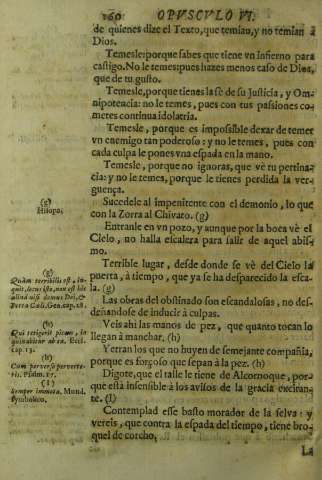 160 OPVSCVLO VI.
de quienes dize el Texto, que temian, y no temian à
Dios.
Temesle: porque sabes que tiene vn infierno para
castigo. No le temes: pues hazes menos caso de Dios,
que de tu gusto.
Temesle, porque tienes la fè de su Justicia, y Om-
nipotencia: no le temes, pues con tus passiones co-
metes continua idolatria.
Temesle, porque es impossible dexar de temer
vn enemigo tan poderoso: y no le temes, pues con
cada culpa le pones vna espada en la mano.
Temesle, porque no ignoras, que vè tu pertina-
cia: y no le temes, porque le tienes perdida la ver-
guença.
(g)
Hisopo.
Sucedele al impenitente con el demonio, lo que
con la Zorra al Chivato. (g)
Entranle en vn pozo, y aunque por la boca vè el
Cielo, no halla escalera para salir de aquel abis-
mo.
(g)
Quàm terribilis est, in-
quit, locus iste, non est hic
aliud nisi domus Dei, &
Porta Cæli. Gen. cap. 28.
Terrible lugar, desde donde se vè del Cielo la
puerta, à tiempo, que ya se ha desparecido la esca-
la. (g)
Las obras del obstinado son escandalosas, no des-
deñandose de inducir à culpas.
(h)
Qui tetigerit picem, in-
quinabitur ab ea. Eccl.
cap. 13.
Veis ahi las manos de pez, que quanto tocan lo
llegan à manchar. (h)
(h)
Cum perverso perverte-
ris. Psalm. 17.
Yerran los que no huyen de semejante compañia,
porque es forçoso que sepan à la pez. (h)
(l)
Semper immota, Mund.
symbolico.
Digote, que el talle le tiene de Alcornoque, por-
que està insensible à los avisos de la gracia excitan-
te. (l)
Contemplad esse basto morador de la selva: y
vereis, que contra la espada del tiempo, tiene bro-
quel de corcho,
La